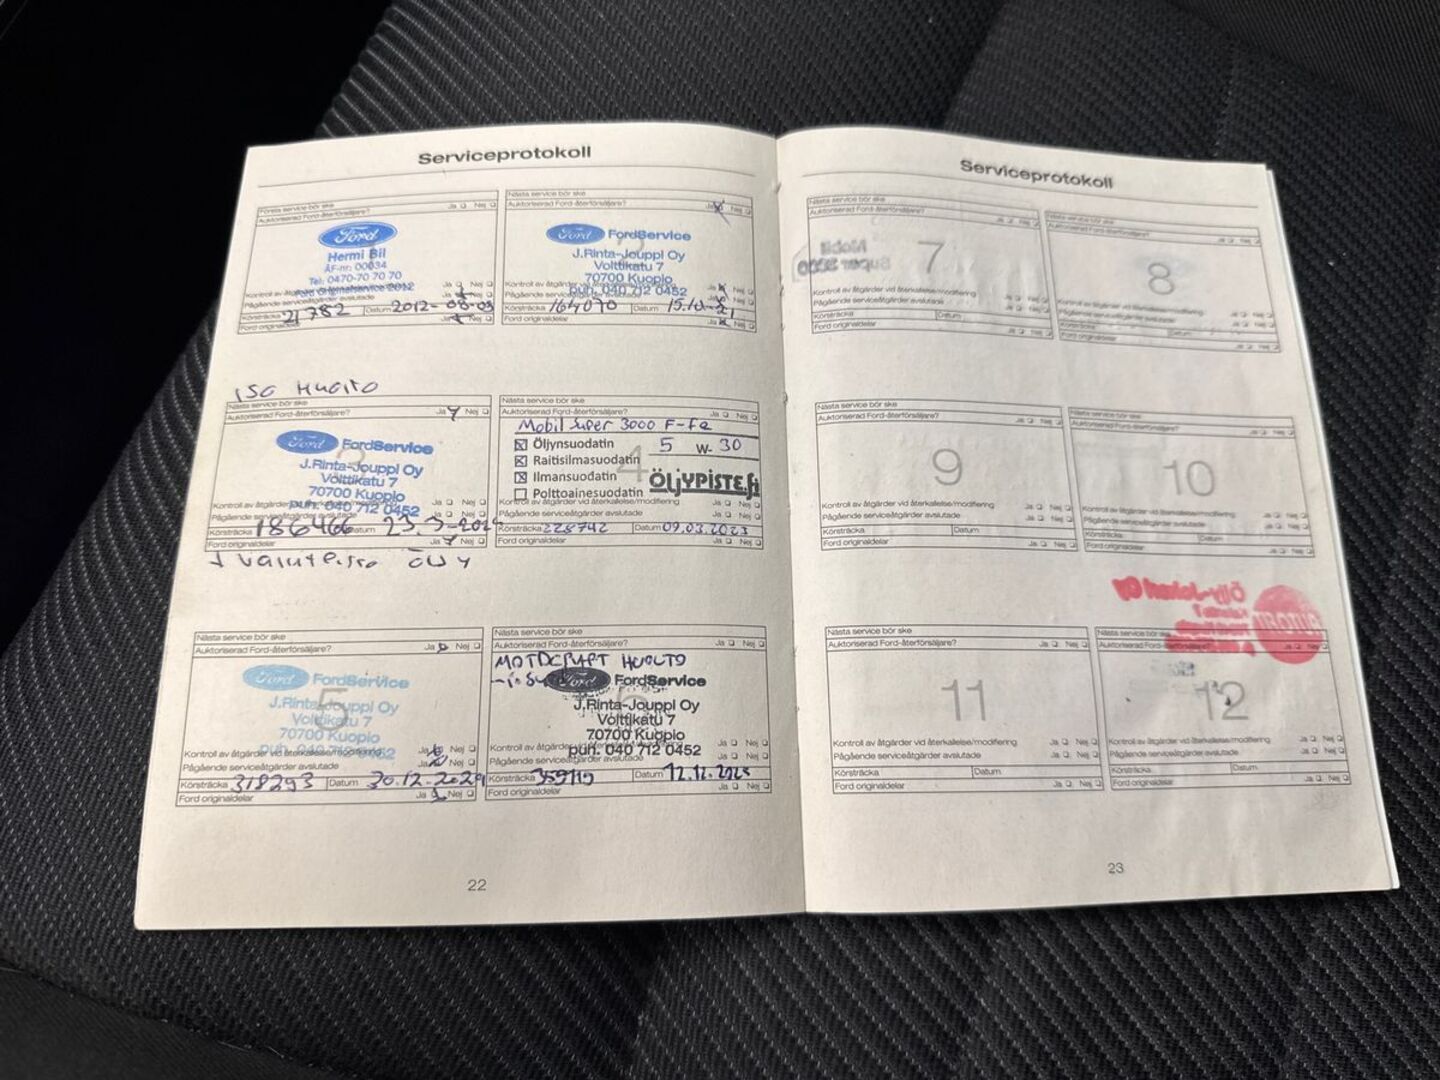 Serviceprotokoll
Första service bör ske
Auktoriserad Ford-återförsäljare? Ja Nej
Ford
Hermi Bil
ÅF-nr: 00034
Tel: 0470-70 70 70
Ford Originalservice 2012
Kontroll av åtgärder vid återkallelse/modifiering Ja Nej
Pågående serviceåtgärder avslutade Ja Nej
Körsträcka 21782 Datum 2012-08-03
Ford originaldelar Ja Nej
Nästa service bör ske
Auktoriserad Ford-återförsäljare? Ja Nej
2
Ford FordService
J.Rinta-Jouppi Oy
Volttikatu 7
70700 Kuopio
puh. 040 712 0452
Kontroll av åtgärder vid återkallelse/modifiering Ja Nej
Pågående serviceåtgärder avslutade Ja Nej
Körsträcka 164070 Datum 15.10-21
Ford originaldelar Ja Nej
ISO HUOLTO
Nästa service bör ske
Auktoriserad Ford-återförsäljare? Ja Nej
3
Ford FordService
J.Rinta-Jouppi Oy
Volttikatu 7
70700 Kuopio
puh. 040 712 0452
Kontroll av åtgärder vid återkallelse/modifiering Ja Nej
Pågående serviceåtgärder avslutade Ja Nej
Körsträcka 186466 Datum 23.3-202
Ford originaldelar Ja Nej
ÖLJY
Nästa service bör ske
Auktoriserad Ford-återförsäljare? Ja Nej
4
Mobil Super 3000 F-FE
Öljynsuodatin 5 W- 30
Raitisilmasuodatin
Ilmansuodatin ÖLJYPISTE.fi
Polttoainesuodatin
Kontroll av åtgärder vid återkallelse/modifiering Ja Nej
Pågående serviceåtgärder avslutade Ja Nej
Körsträcka 228742 Datum 09.03.2023
Ford originaldelar Ja Nej
Nästa service bör ske
Auktoriserad Ford-återförsäljare? Ja Nej
5
Ford FordService
J.Rinta-Jouppi Oy
Volttikatu 7
70700 Kuopio
puh. 040 712 0452
Kontroll av åtgärder vid återkallelse/modifiering Ja Nej
Pågående serviceåtgärder avslutade Ja Nej
Körsträcka 318293 Datum 30.12.2024
Ford originaldelar Ja Nej
Nästa service bör ske
Auktoriserad Ford-återförsäljare? Ja Nej
6
MOTORCRAFT HUOLTO
Ford FordService
J.Rinta-Jouppi Oy
Volttikatu 7
70700 Kuopio
puh. 040 712 0452
Kontroll av åtgärder vid återkallelse/modifiering Ja Nej
Pågående serviceåtgärder avslutade Ja Nej
Körsträcka Datum 12.12.2025
Ford originaldelar Ja Nej
22
Serviceprotokoll
Nästa service bör ske
Auktoriserad Ford-återförsäljare? Ja Nej
7
Kontroll av åtgärder vid återkallelse/modifiering Ja Nej
Pågående serviceåtgärder avslutade Ja Nej
Körsträcka Datum
Ford originaldelar Ja Nej
Nästa service bör ske
Auktoriserad Ford-återförsäljare? Ja Nej
8
Kontroll av åtgärder vid återkallelse/modifiering Ja Nej
Pågående serviceåtgärder avslutade Ja Nej
Körsträcka Datum
Ford originaldelar Ja Nej
Nästa service bör ske
Auktoriserad Ford-återförsäljare? Ja Nej
9
Kontroll av åtgärder vid återkallelse/modifiering Ja Nej
Pågående serviceåtgärder avslutade Ja Nej
Körsträcka Datum
Ford originaldelar Ja Nej
Nästa service bör ske
Auktoriserad Ford-återförsäljare? Ja Nej
10
Kontroll av åtgärder vid återkallelse/modifiering Ja Nej
Pågående serviceåtgärder avslutade Ja Nej
Körsträcka Datum
Ford originaldelar Ja Nej
Nästa service bör ske
Auktoriserad Ford-återförsäljare? Ja Nej
11
Kontroll av åtgärder vid återkallelse/modifiering Ja Nej
Pågående serviceåtgärder avslutade Ja Nej
Körsträcka Datum
Ford originaldelar Ja Nej
Nästa service bör ske
Auktoriserad Ford-återförsäljare? Ja Nej
12
Kontroll av åtgärder vid återkallelse/modifiering Ja Nej
Pågående serviceåtgärder avslutade Ja Nej
Körsträcka Datum
Ford originaldelar Ja Nej
23